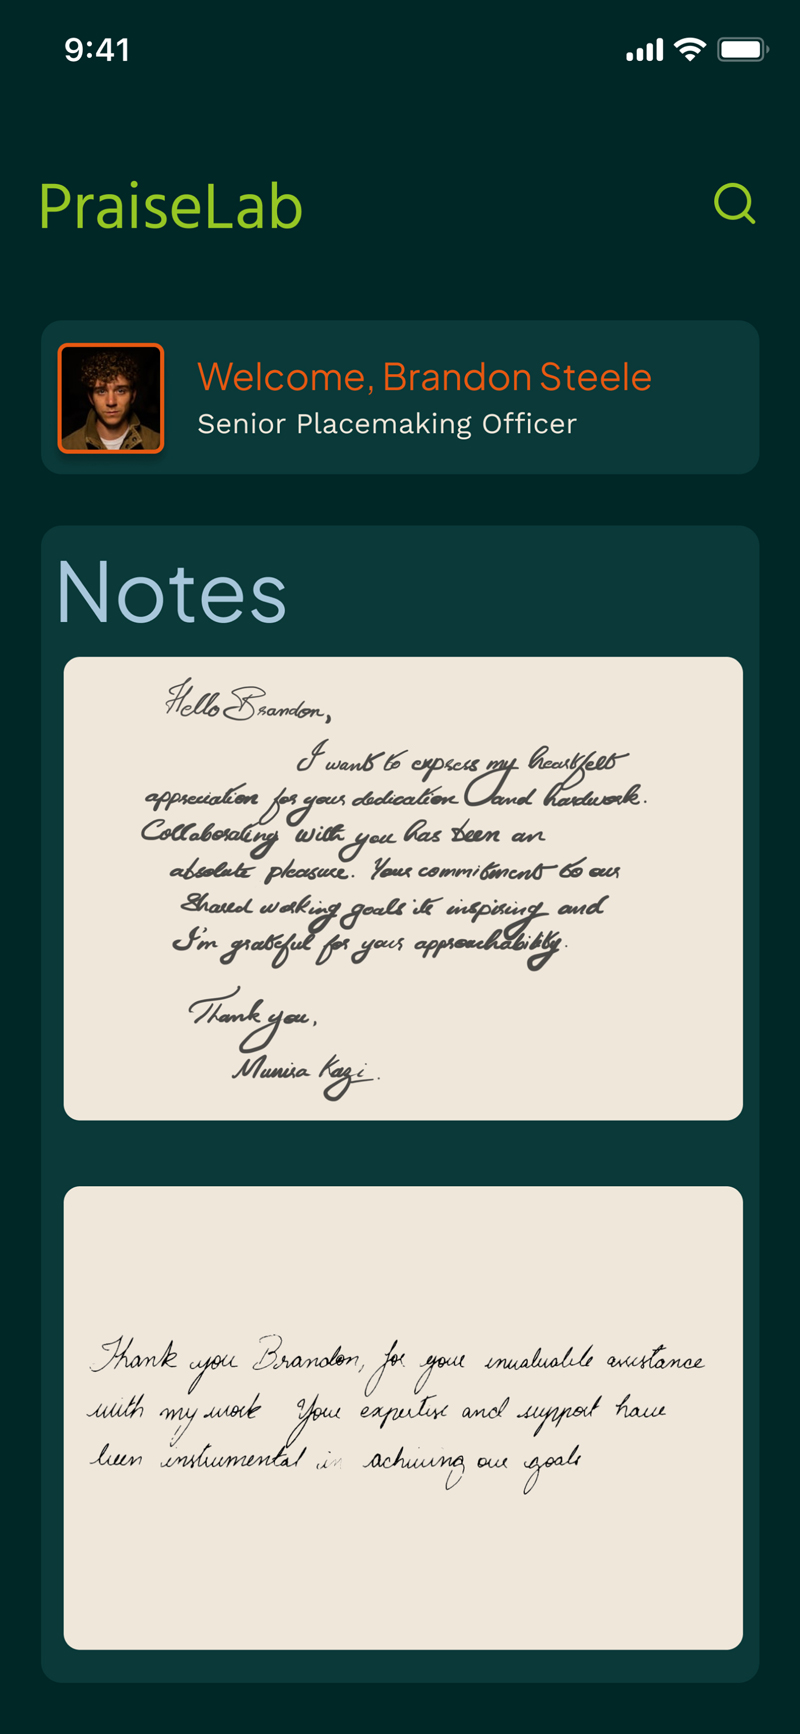 9:41
PraiseLab
Welcome, Brandon Steele
Senior Placemaking Officer
Notes
Hello Brandon,
I want to express my heartfelt
appreciation for your dedication and hardwork.
Collaborating with you has been an
absolute pleasure. Your commitment to our
Shared working goals its inspiring and
I'm grateful for your approachability.
Thank you,
Munisa Kazi.
Thank you Brandon, for your invaluable assistance
with my work Your expertise and support have
been instrumental in achieving our goals